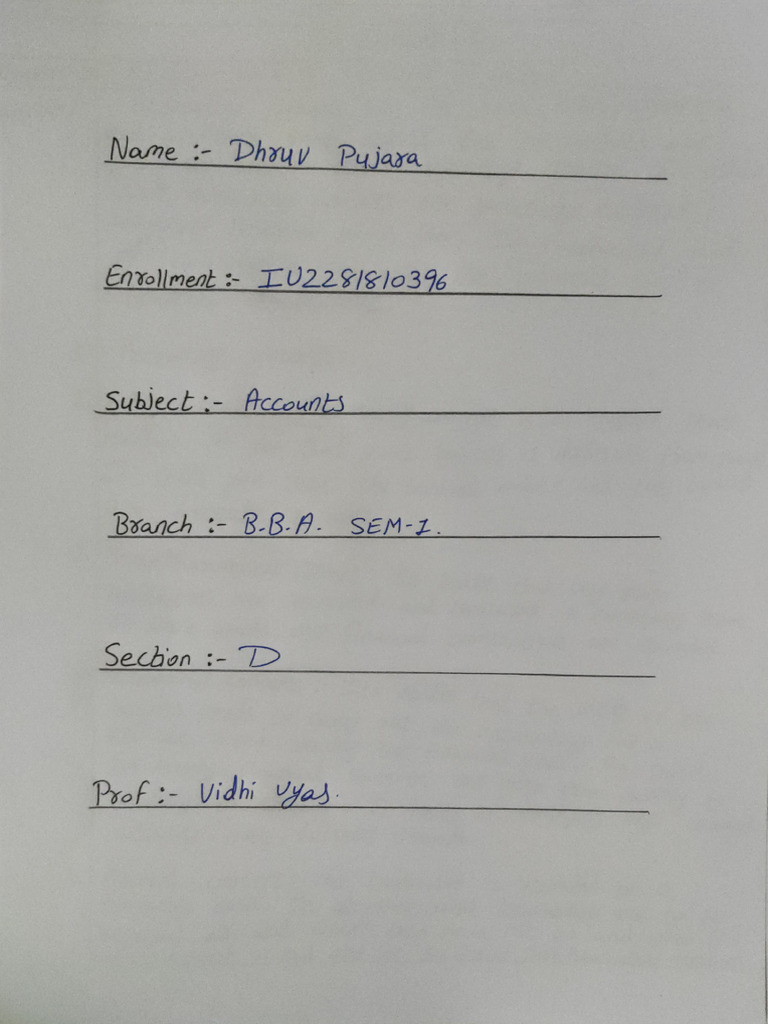 Name :- Dhruv Pujara
Enrollment :- IU2281810396
Subject :- Accounts
Branch :- B.B.A. SEM-I.
Section :- D
Prof :- Vidhi Vyas.